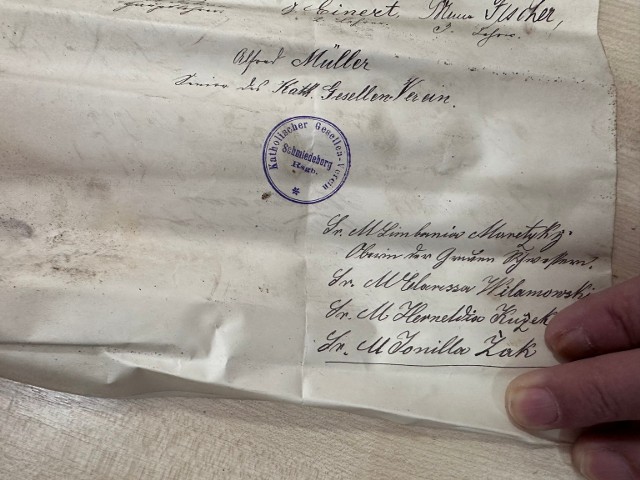 Einert. Fischer,
Lehrer.
Alfred Müller
Senior des Kath. Gesellen Verein.
Katholischer Gesellen-Verein
Schmiedeberg
Rsgb.
Sr. M Limbania
Oberin der Grauen Schwestern.
Sr. M Clarissa Wilamowski
Sr. M Kuzek
Sr. M Jonilla Zak